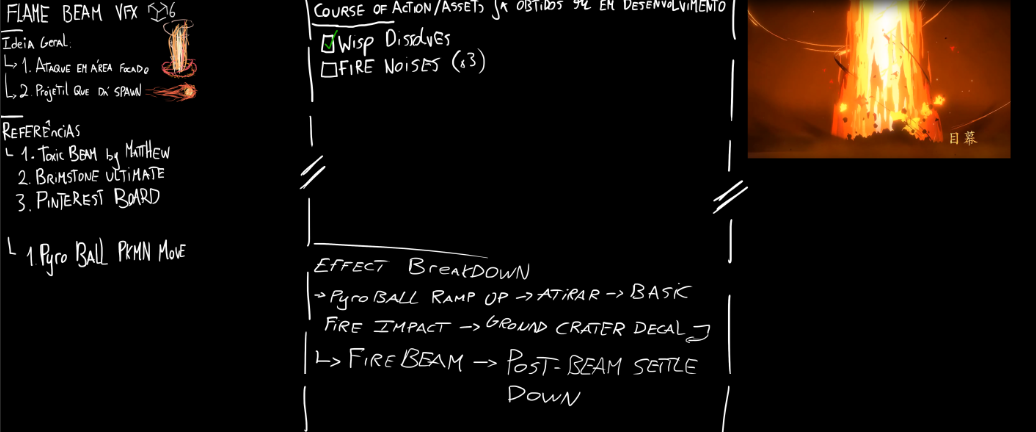 FLAME BEAM VFX 6
Ideia Geral
1. ATAQUE EM ÁREA FOCADO
2. PROJETIL QUE DÁ SPAWN
REFERÊNCIAS
1. TOXIC BEAM by MATTHEW
2. BRIMSTONE ULTIMATE
3. PINTEREST BOARD
1. Pyro BALL PKMN MOVE
COURSE OF ACTION/ASSETS JÁ OBTIDOS EM DESENVOLVIMENTO
WISP DISSOLVES
FIRE NOISES (x3)
EFFECT BreakDOWN
→ PyroBALL RAMP UP → ATIRAR → BASIC
FIRE IMPACT → GROUND CRATER DECAL
↳ FIRE BEAM → POST-BEAM SETTLE
DOWN
目幕